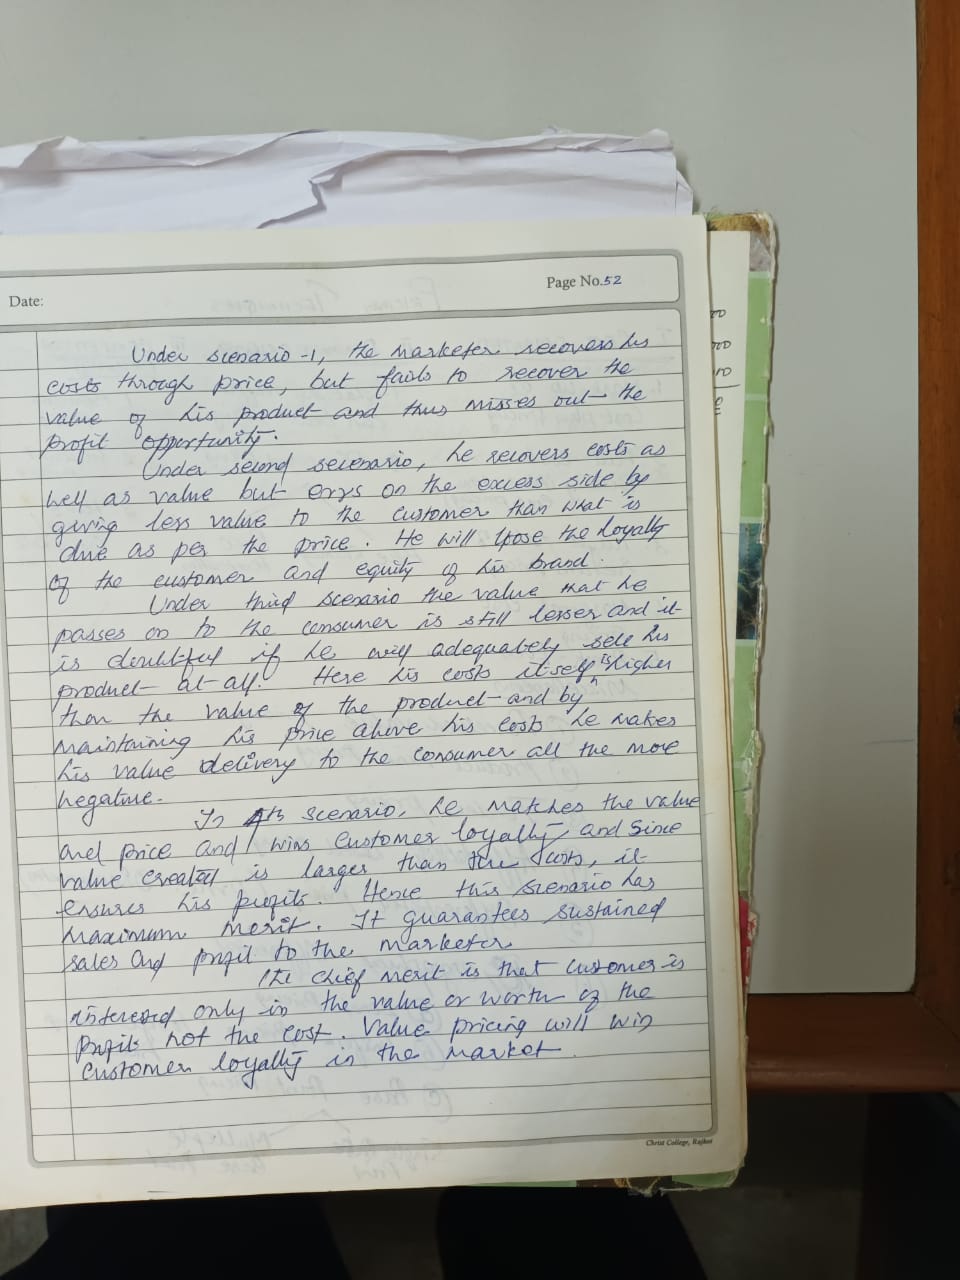 Date:
Page No.52
Under scenario -1, the marketer recovers his
costs through price, but fails to recover the
value of his product and thus misses out the
profit opportunity.
Under second secenario, he recovers costs as
well as value but errs on the excess side by
giving less value to the customer than what is
due as per the price. He will loose the loyalty
of the customer and equity of his brand.
Under third scenario the value that he
passes on to the consumer is still lesser and it
is doubtful if he will adequately sell his
product at-all. Here his costs itself is higher
than the value of the product and by
maintaining his price above his costs he makes
his value delivery to the consumer all the more
negative.
In 4th scenario, he matches the value
and price and wins customer loyalty and since
value created is larger than the costs, it
ensures his profits. Hence this scenario has
maximum merit. It guarantees sustained
sales and profit to the marketer
The chief merit is that customer is
interested only in the value or worth of the
not the cost. Value pricing will win
customer loyalty in the market.
Christ College, Rajkot